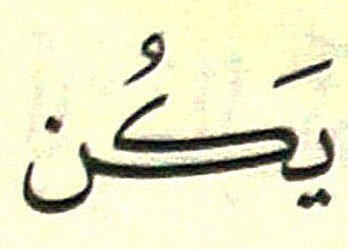 يَكُن